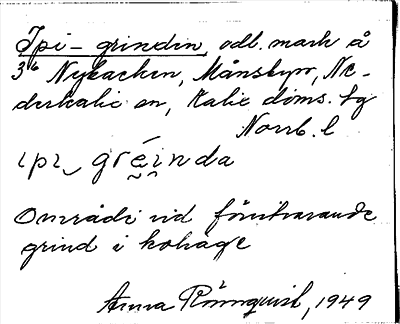 Ipi-grindin, odl. mark å
36 Nybacken, Månsbyn, Ne-
derkalix sn, Kalix doms. tg
Norrb. l
ɩpɩ gréinda
Område vid förutvarande
grind i kohage
Anna Rönnqvist, 1949